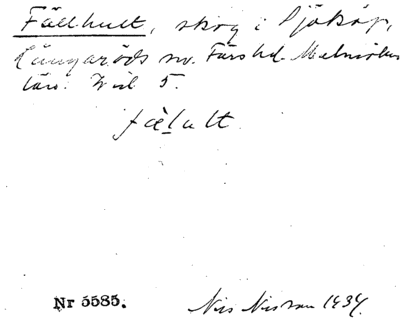 Fällhult, skog i Sjököp,
Långaröds sn. Färs hd. Malmöhus
län. Bil 5.
fälult
Nr 5585.
Nils Nilsson 1934.